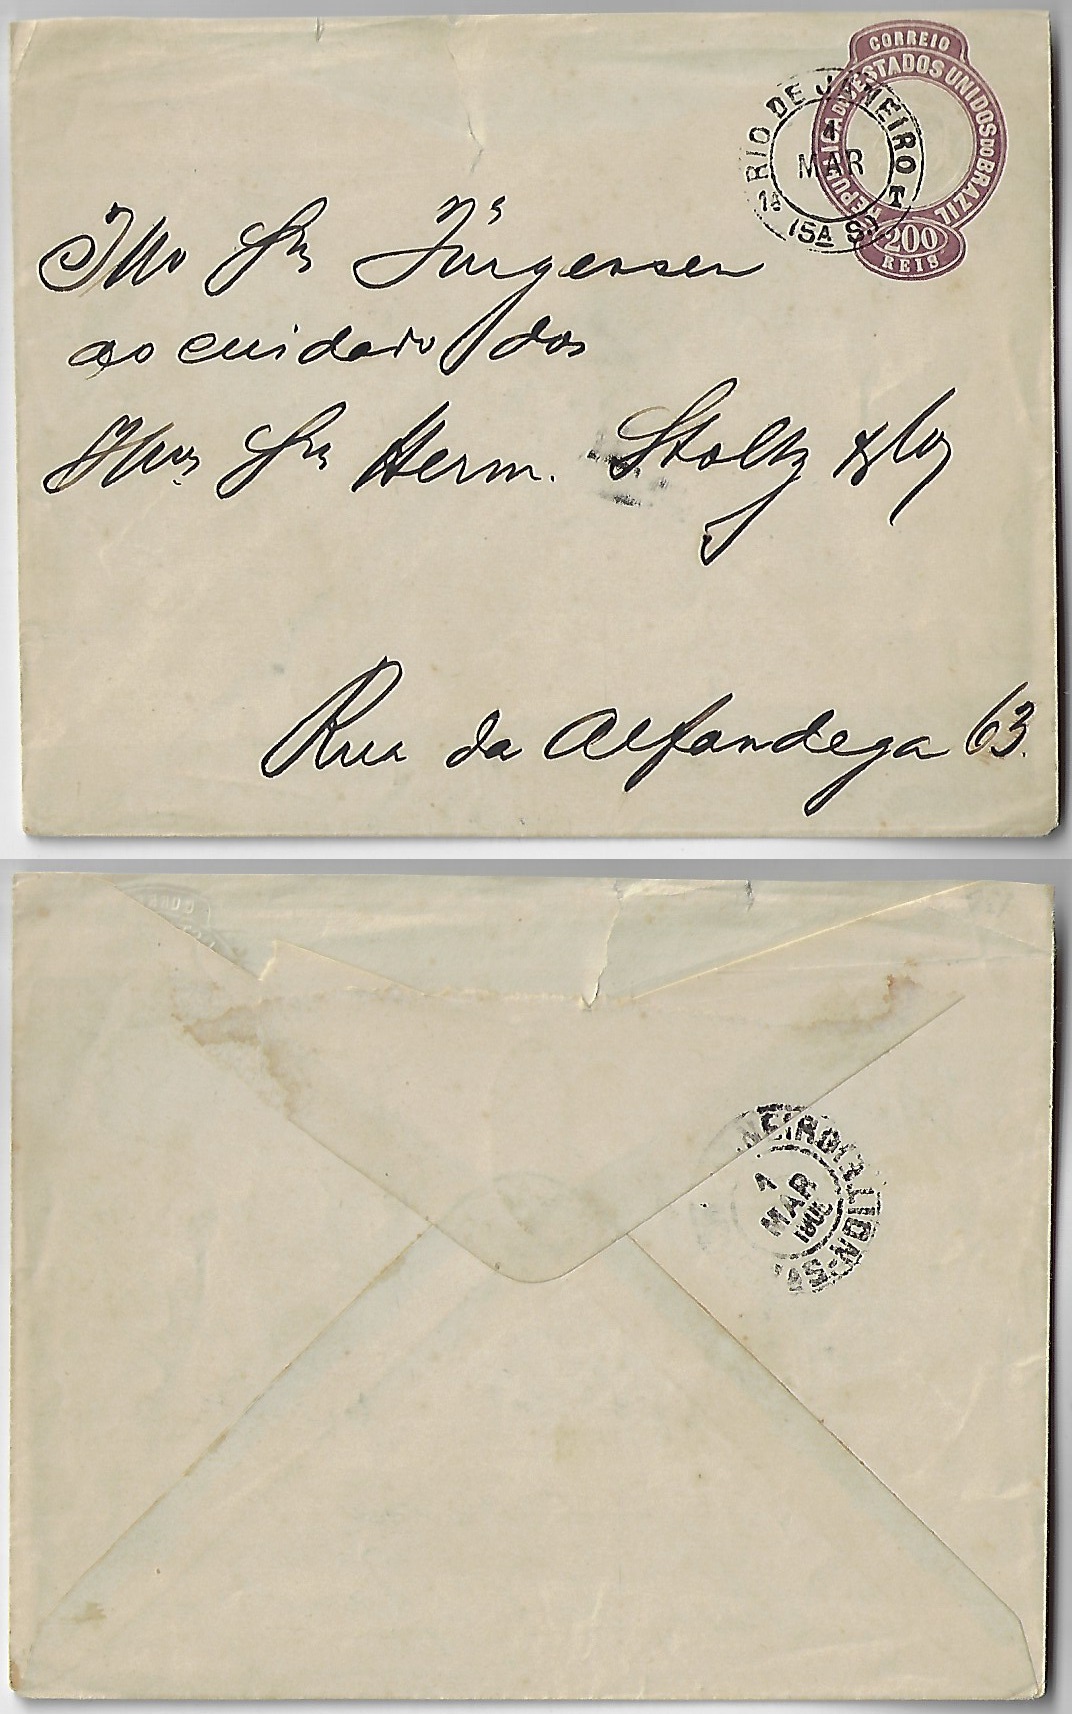 CORREIO
REPUBLICA DOS ESTADOS UNIDOS DO BRAZIL
200
REIS
RIO DE JANEIRO
MAR
1ª
T
15A
Illo Snr Jürgensen
ao cuidado dos
Illmos Snrs Herm. Stoltz & Co
Rua da Alfandega 63.
1
MAR